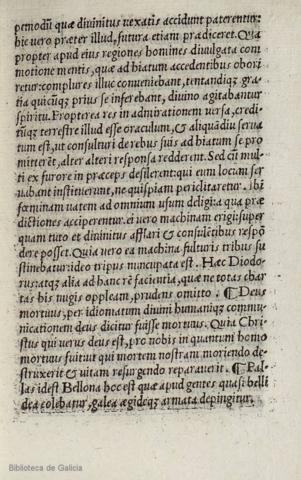 pemodũ quæ diuinitus uexatis accidunt paterentur:
hic uero præter illud, futura etiam prædiceret. Qua
propter apud eius regiones homines diuulgata com
motione mentis, quæ ad hiatum accedentibus obori
retur: complures illuc conueniebant, tentandiq; gra
tia quicũq; prius se inferebant, diuino agitabantur
spiritu. Propterea res in admirationem uersa, credi
tũq; terrestre illud esse oraculum, & aliquãdiu serua
tum est, ut consulturi de rebus suis ad hiatum se pro
mitterẽt, alter alteri responsa redderent. Sed cũ mul
ti ex furore in præceps desilerent: qui eum locum ser
uabant instituerunt, ne quispiam periclitaretur. Ibi
fœminam uatem ad omnium usum deligi: a qua præ
dictiones acciperentur. ei uero machinam erigi: super
quam tuto et diuinitus afflari & consulẽtibus respõ
dere posset. Quia uero ea machina fulturis tribus su
stinebatur: ideo tripus nuncupata est. Hæc Diodo-
rus: atq; alia ad hanc rẽ facientia, quæ ne totas char
tas his nugis oppleam, prudens omitto. ¶ Deus
mortuus, per idiomatum diuini humaniq; commu-
nicationem deus dicitur fuisse mortuus. Quia Chri-
stus qui uerus deus est, pro nobis in quantũ homo
mortuus fuit: ut qui mortem nostram moriendo de-
struxerit & uitam resurgendo reparauerit. ¶ Pal-
las idest Bellona hoc est quæ apud gentes quasi belli
dea colebatur, galea ægideq; armata depingitur.
Biblioteca de Galicia